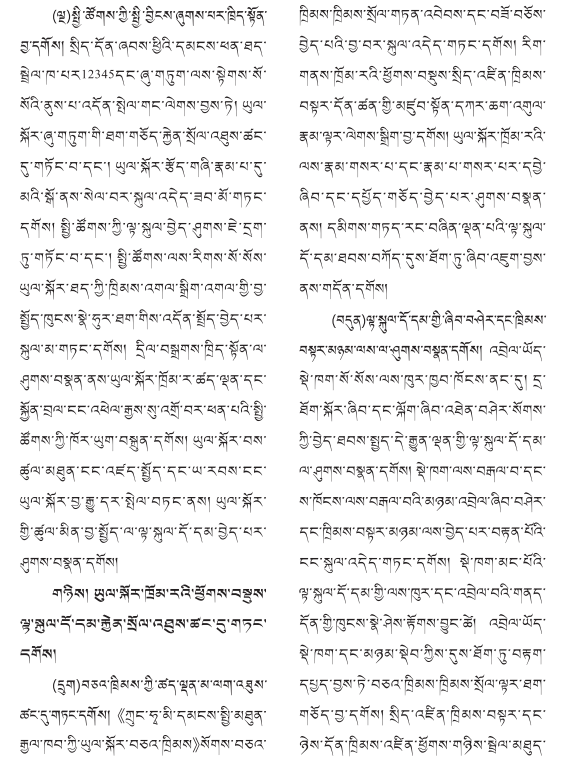 (ལྔ)སྤྱི་ཚོགས་ཀྱི་སྤྱི་བྱིངས་ཞུགས་པར་ཁྲིད་སྟོན་
བྱ་དགོས། སྲིད་དོན་ཞབས་ཕྱིའི་དམངས་ཕན་ཐད་
སྦྲེལ་ཁ་པར12345དང་ཞུ་གཏུག་ལས་སྟེགས་སོ་
སོའི་ནུས་པ་འདོན་སྤེལ་གང་ལེགས་བྱས་ཏེ། ཡུལ་
སྐོར་ཞུ་གཏུག་གི་ཐག་གཅོད་རྐྱེན་སྲོལ་འཐུས་ཚང་
དུ་གཏོང་བ་དང་། ཡུལ་སྐོར་རྩོད་གཞི་རྣམ་པ་དུ་
མའི་སྒོ་ནས་སེལ་བར་སྐུལ་འདེད་ཟབ་མོ་གཏང་
དགོས། སྤྱི་ཚོགས་ཀྱི་ལྟ་སྐུལ་བྱེད་ཤུགས་ཇེ་དྲག་
ཏུ་གཏོང་བ་དང་། སྤྱི་ཚོགས་ལས་རིགས་སོ་སོས་
ཡུལ་སྐོར་ཐད་ཀྱི་ཁྲིམས་འགལ་སྒྲིག་འགལ་གྱི་བྱ་
སྤྱོད་ཁུངས་སྣེ་ཧུར་ཐག་གིས་འདོན་སྤྲོད་བྱེད་པར་
སྐུལ་མ་གཏང་དགོས། དྲིལ་བསྒྲགས་ཁྲིད་སྟོན་ལ་
ཤུགས་བསྣན་ནས་ཡུལ་སྐོར་ཁྲོམ་ར་ཚད་ལྡན་དང་
སྐྱོན་བྲལ་ངང་འཕེལ་རྒྱས་སུ་འགྲོ་བར་ཕན་པའི་སྤྱི་
ཚོགས་ཀྱི་ཁོར་ཡུག་བསྐྲུན་དགོས། ཡུལ་སྐོར་བས་
ཚུལ་མཐུན་ངང་འཛད་སྤྱོད་དང་ཡ་རབས་ངང་
ཡུལ་སྐོར་བྱ་རྒྱུ་དར་སྤེལ་བཏང་ནས། ཡུལ་སྐོར་
གྱི་ཚུལ་མིན་བྱ་སྤྱོད་ལ་ལྟ་སྐུལ་དོ་དམ་བྱེད་པར་
ཤུགས་བསྣན་དགོས།
གཉིས། ཡུལ་སྐོར་ཁྲོམ་རའི་ཕྱོགས་བསྡུས་
ལྟ་སྐུལ་དོ་དམ་རྐྱེན་སྲོལ་འཐུས་ཚང་དུ་གཏང་
དགོས།
(དྲུག)བཅའ་ཁྲིམས་ཀྱི་ཚད་ལྡན་མ་ལག་འཐུས་
ཚང་དུ་གཏང་དགོས། 《ཀྲུང་ཧྭ་མི་དམངས་སྤྱི་མཐུན་
རྒྱལ་ཁབ་ཀྱི་ཡུལ་སྐོར་བཅའ་ཁྲིམས》སོགས་བཅའ་
ཁྲིམས་ཁྲིམས་སྲོལ་གཏན་འབེབས་དང་བཟོ་བཅོས་
བྱེད་པའི་བྱ་བར་སྐུལ་འདེད་གཏང་དགོས། རིག་
གནས་ཁྲོམ་རའི་ཕྱོགས་བསྡུས་སྲིད་འཛིན་ཁྲིམས་
བསྟར་དོན་ཚན་གྱི་མཛུབ་སྟོན་དཀར་ཆག་འགུལ་
རྣམ་ལྟར་ལེགས་སྒྲིག་བྱ་དགོས། ཡུལ་སྐོར་ཁྲོམ་རའི་
ལས་རྣམ་གསར་པ་དང་རྣམ་པ་གསར་པར་དབྱེ་
ཞིབ་དང་དཔྱོད་གཅོད་བྱེད་པར་ཤུགས་བསྣན་
ནས། དམིགས་གཏད་རང་བཞིན་ལྡན་པའི་ལྟ་སྐུལ་
དོ་དམ་ཐབས་བཀོད་དུས་ཐོག་ཏུ་ཞིབ་འཇུག་བྱས་
ནས་གདོན་དགོས།
(བདུན)ལྟ་སྐུལ་དོ་དམ་གྱི་ཞིབ་བཤེར་དང་ཁྲིམས་
བསྟར་མཉམ་ལས་ལ་ཤུགས་བསྣན་དགོས། འབྲེལ་ཡོད་
སྡེ་ཁག་སོ་སོས་ལས་ཁུར་ཁྱབ་ཁོངས་ནང་དུ། དྲ་
ཐོག་སྐོར་ཞིབ་དང་ལྐོག་ཞིབ་འཐེན་བཤེར་སོགས་
ཀྱི་བྱེད་ཐབས་སྤྱད་དེ་རྒྱུན་ལྡན་གྱི་ལྟ་སྐུལ་དོ་དམ་
ལ་ཤུགས་བསྣན་དགོས། སྡེ་ཁག་ལས་བརྒལ་བ་དང་
ས་ཁོངས་ལས་བརྒལ་བའི་མཉམ་འབྲེལ་ཞིབ་བཤེར་
དང་ཁྲིམས་བསྟར་མཉམ་ལས་བྱེད་པར་བརྟན་པོའི་
ངང་སྐུལ་འདེད་གཏང་དགོས། སྡེ་ཁག་མང་པོའི་
ལྟ་སྐུལ་དོ་དམ་གྱི་ལས་ཁུར་དང་འབྲེལ་བའི་གནད་
དོན་གྱི་ཁུངས་སྣེ་ཤེས་རྟོགས་བྱུང་ཚེ། འབྲེལ་ཡོད་
སྡེ་ཁག་དང་མཉམ་སྡེབ་ཀྱིས་དུས་ཐོག་ཏུ་བརྟག་
དཔྱད་བྱས་ཏེ་བཅའ་ཁྲིམས་ཁྲིམས་སྲོལ་ལྟར་ཐག་
གཅོད་བྱ་དགོས། སྲིད་འཛིན་ཁྲིམས་བསྟར་དང་
ཉེས་དོན་ཁྲིམས་འཛིན་ཕྱོགས་གཉིས་སྦྲེལ་མཐུད་